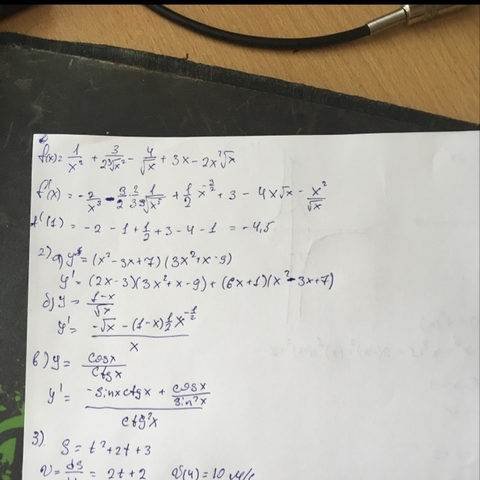 f(x)= 1/x² + 3/(2∛x²) - 4/√x + 3x - 2x²√x
f'(x) = -2/x³ - 3/2 · 2/3 1/∛x⁵ + 1/2 x^(-3/2) + 3 - 4x√x - x²/√x
f'(1) = -2 - 1 + 1/2 + 3 - 4 - 1 = -4,5
2) a) y = (x² - 3x + 7)(3x² + x - 9)
y' = (2x - 3)(3x² + x - 9) + (6x + 1)(x² - 3x + 7)
б) y = (1-x)/√x
y' = (-√x - (1-x) 1/2 x^(-1/2))/x
в) y = cosx/ctgx
y' = (-sinx ctgx + cosx/sin²x)/ctg²x
3) S = t² + 2t + 3
v = dS/dt = 2t + 2 v(4) = 10 м/с